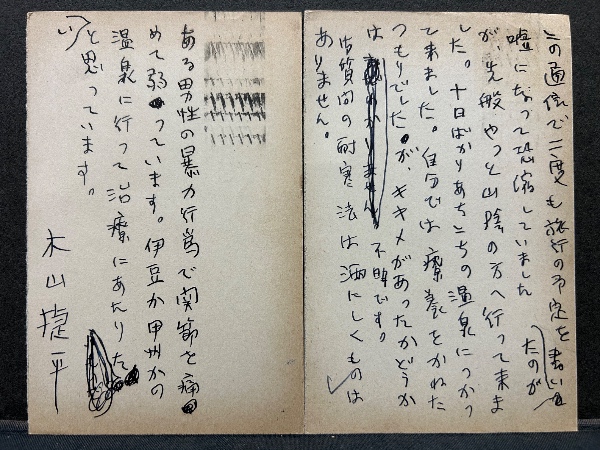 この通信で二度も旅行の予定を書い
たのが
嘘になって恐縮していました
が、先般やっと山陰の方へ行って来ま
した。十日ばかりあちこちの温泉につかっ
て来ました。自分では療養をかねた
つもりでしたが、キキメがあったかどうか
は 不明です。
御質問の耐寒法は酒にしくものは
ありません。
ある男性の暴力行為で関節を痛
めて弱っています。伊豆か甲州かの
温泉に行って治療にあたりた
いと思っています。
木山捷平